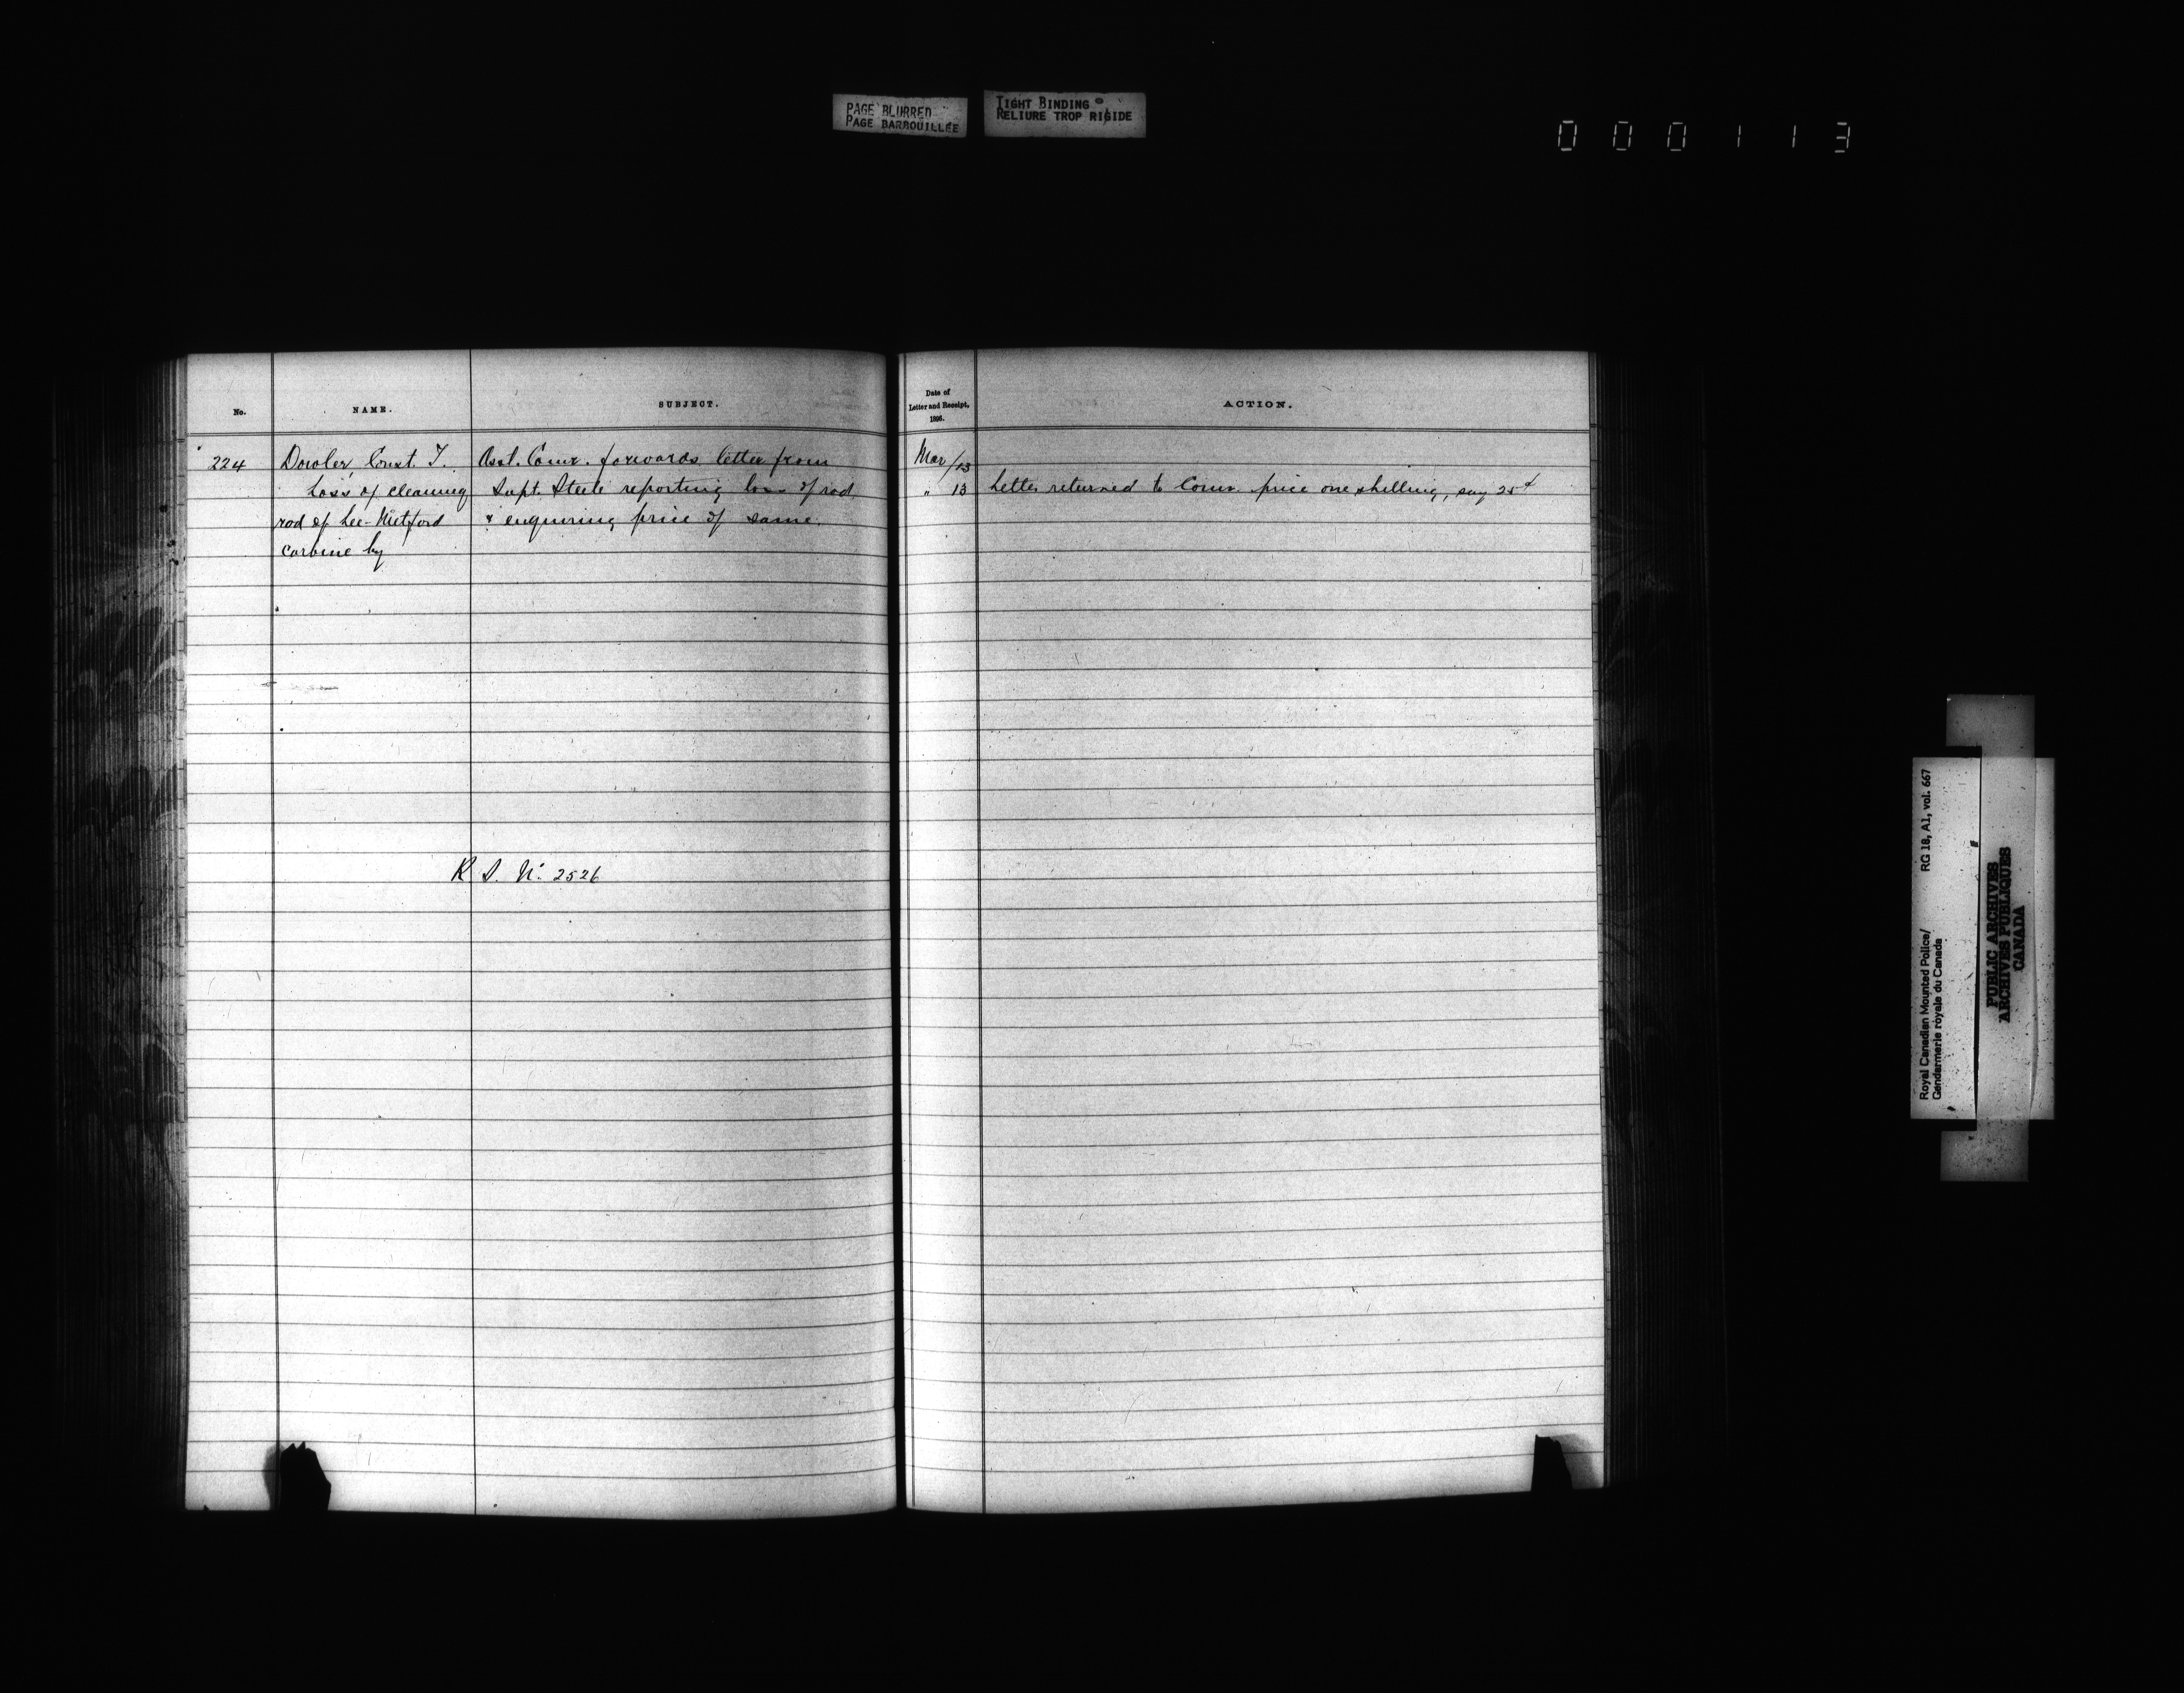 PAGE BLURRED
PAGE BARBOUILLÉE
TIGHT BINDING
RELIURE TROP RIGIDE
0 0 0 1 1 3
No.
NAME.
SUBJECT.
Date of
Letter and Receipt,
1896.
ACTION.
224
Dowler, Const. T.
Loss of cleaning
rod of Lee-Metford
carbine by
Asst. Comr. forwards letter from
Supt. Steele reporting loss of rod
& enquiring price of same.
Mar/13
" 13
Letter returned to Comr. price one shilling, say 25¢
R. S. No. 2526
Royal Canadian Mounted Police/
Gendarmerie royale du Canada
RG 18, A1, vol. 667
PUBLIC ARCHIVES
ARCHIVES PUBLIQUES
CANADA